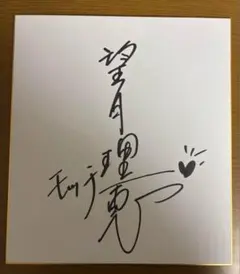 望月理恵
モッチー